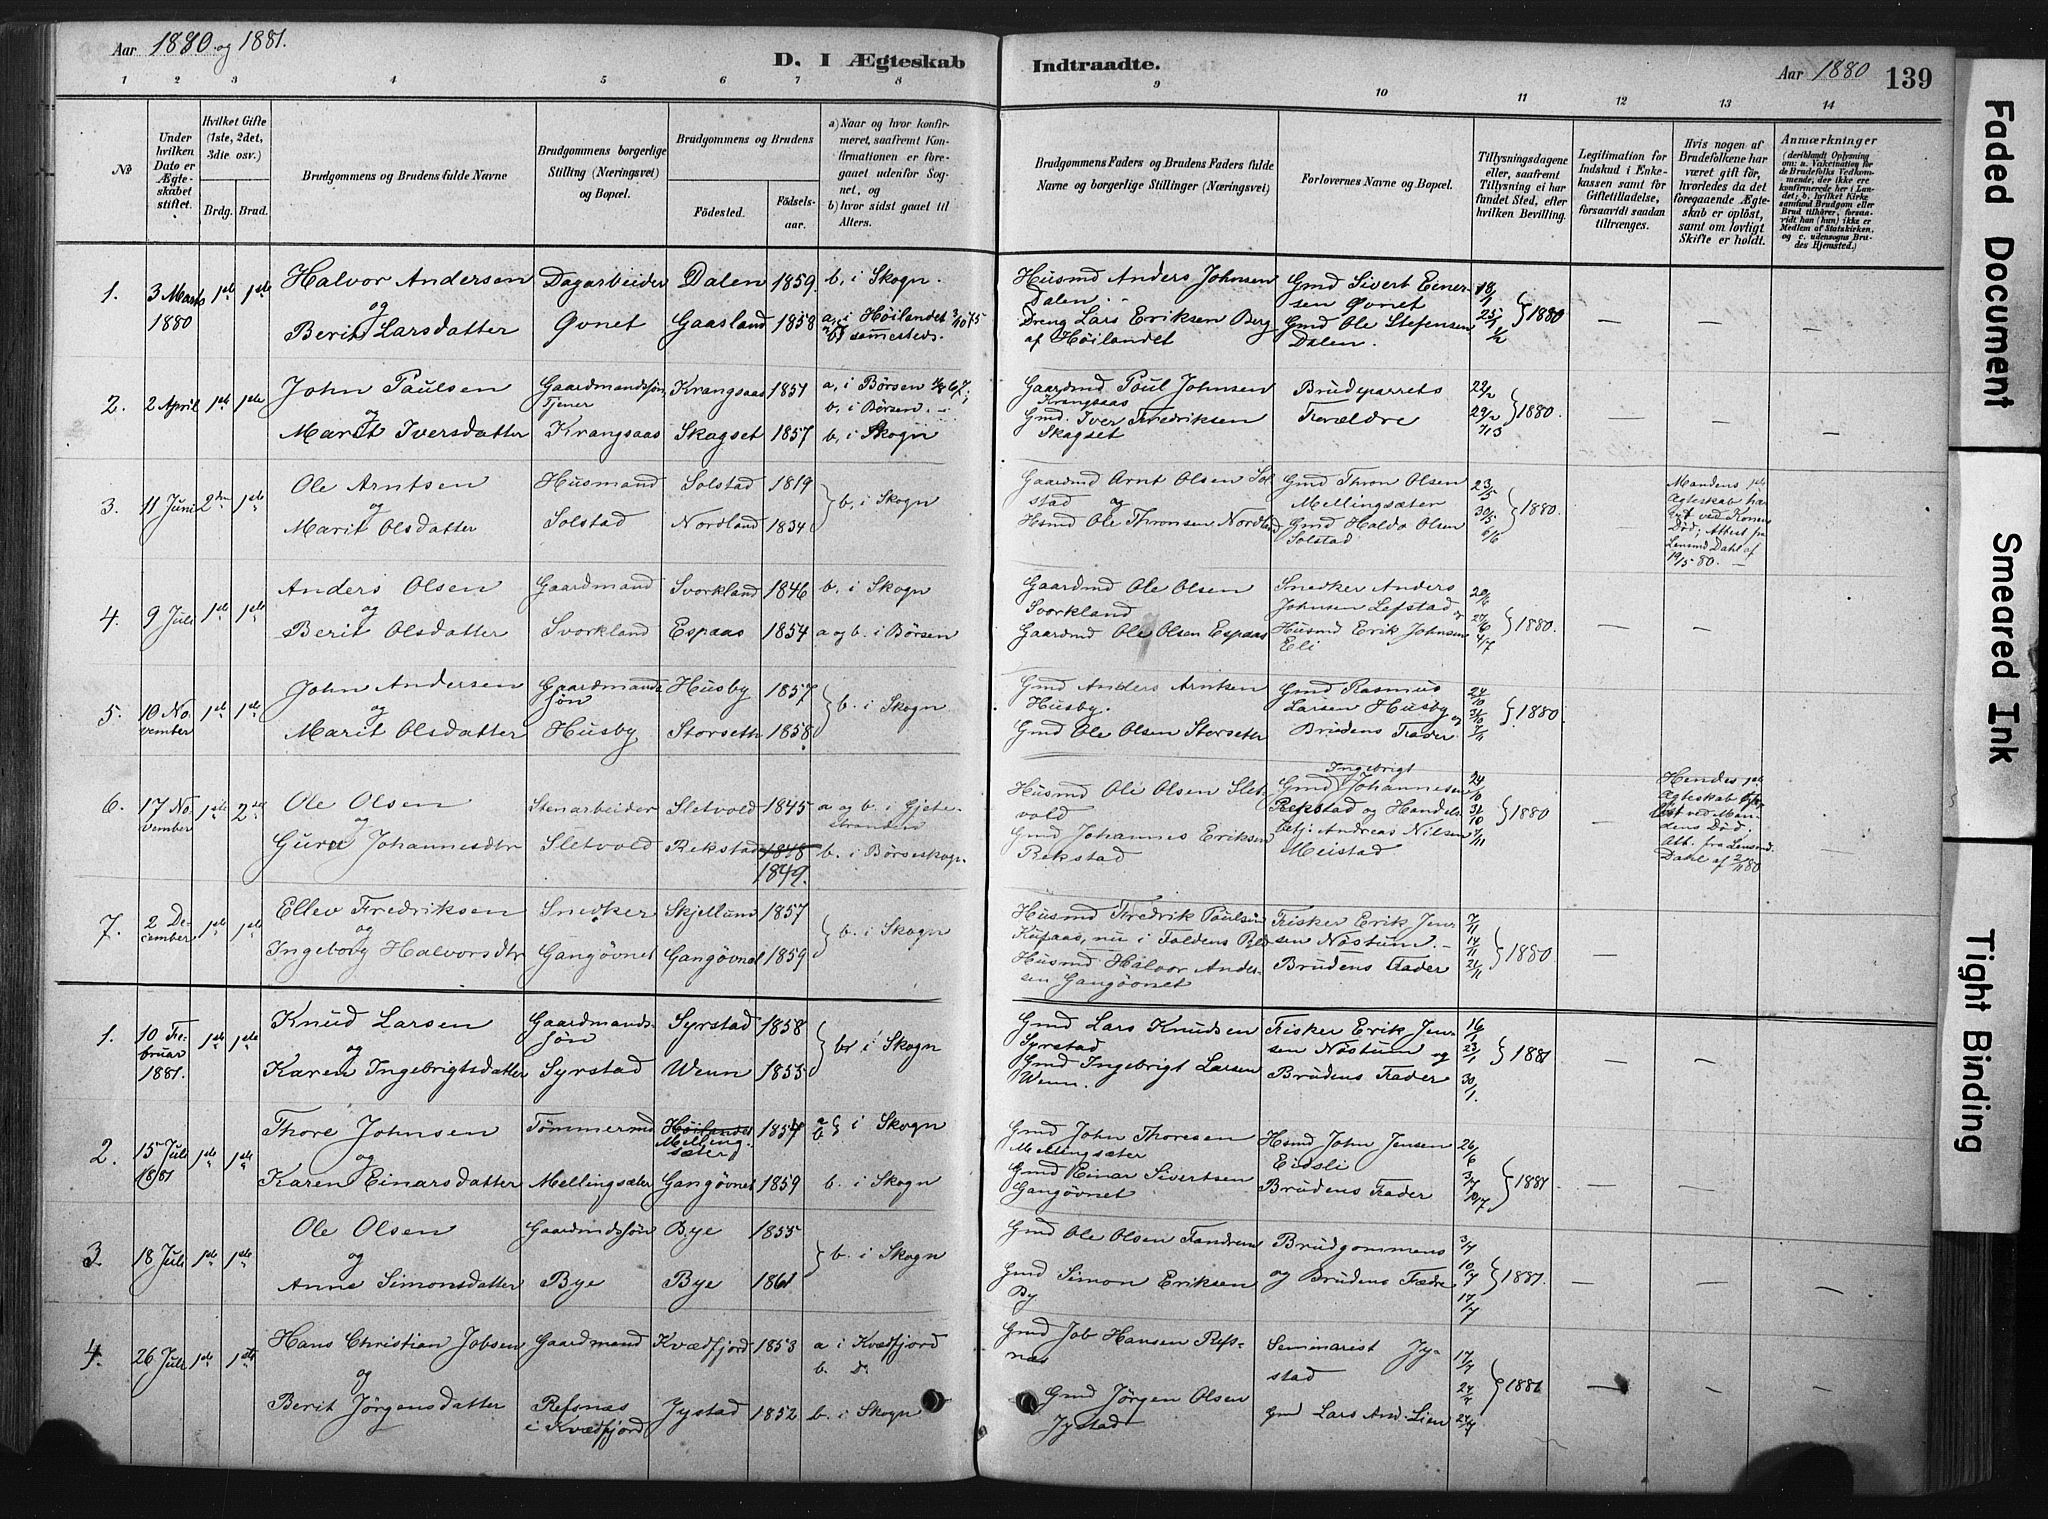 Aar 1880 og 1881.
D. I Ægteskab Indtraadte.
Aar 1880
139
1 2 3 4 5 6 7 8 9 10 11 12 13 14
No
Under hvilken Dato er Ægteskabet stiftet.
Hvilket Gifte (1ste, 2det, 3die osv.)
Brdg. Brud.
Brudgommens og Brudens fulde Navne
Brudgommens borgerlige Stilling (Næringsvei) og Bopæl.
Brudgommens og Brudens
Födested.
Födselsaar.
a) Naar og hvor konfirmeret, saafremt Konfirmationen er foregaaet udenfor Sognet, og
b) hvor sidst gaaet til Alters.
Brudgommens Faders og Brudens Faders fulde Navne og borgerlige Stillinger (Næringsvei)
Forlovernes Navne og Bopæl.
Tillysningsdagene eller, saafremt Tillysning ei har fundet Sted, efter hvilken Bevilling.
Legitimation for Indskud i Enkekassen samt for Giftetilladelse, forsaavidt saadan tiltrænges.
Hvis nogen af Brudefolkene har været gift för, hvorledes da det foregaaende Ægteskab er oplöst, samt om lovligt Skifte er holdt.
Anmærkninger
(deriblandt Oplysning om: a. Vakcination for de Brudefolks Vedkommende, der ikke ere konfirmerede her i Landet; b. hvilket Kirkesamfund Brudgom eller Brud tilhörer, forsaavidt han (hun) ikke er Medlem af Statskirken, og c. udensogns Brudes Hjemsted.)
1. 3 Marts 1ste 1ste Halvor Andersen Dagarbeider Dalen 1859 b, i Skogn. Husmd Anders Johnsen Gmd Sivert Einer- 18/1
1880 og Dalen. sen Øvnet 25/1 1880
Berit Larsdatter Øvnet Gaasland 1858 a, i Höilandet 3/10 75 Dreng Lars Eriksen Berg Gmd Ole Stefensen 1/2
b, sammesteds. af Höilandet Dalen.
2. 2 April 1ste 1ste John Paulsen Gaardmandssön, Krangsaas 1851 a, i Börsen Gaardmd Poul Johnsen Brudeparrets 22/2
og Tjener b, i Börsen. Krangsaas 29/2 1880.
Marit Iversdatter Krangsaas Skagset 1857 b, i Skogn Gmd. Iver Fredriksen Forældre 7/3
Skagset
3. 11 Juni 2den 1ste Ole Arntsen Husmand Solstad 1819 b, i Skogn Gaardmd Arnt Olsen Sol- Gmd Thron Olsen 23/5 Mandens 1ste
og stad og Mellingsæter 30/5 1880. Ægteskab hæ-
Marit Olsdatter Solstad Nordland 1834 Hsmd Ole Thronsen Nordland Gmd Haldo Olsen 6/6 vet ved Konens
Solstad Död; Attest fra
Lensmd Dahl af
19/5 80.
4. 9 Juli 1ste 1ste Anders Olsen Gaardmand Svorkland 1846 b, i Skogn Gaardmd Ole Olsen Snedker Anders 20/6
og Svorkland Johnsen Lefstad og 27/6 1880.
Berit Olsdatter Svorkland Espaas 1854 a og b. i Börsen Gaardmd Ole Olsen Espaas Husmd Erik Johnsen 4/7
Eli
5. 10 No- 1ste 1ste John Andersen Gaardmands- Husby 1857 b. i Skogn Gmd Anders Arntsen Gmd Rasmus 24/10
vember og sön Husby. Larsen Husby og 31/10 1880.
Marit Olsdatter Husby Storseth 1858 Gmd Ole Olsen Storseter Brudens Fader 7/11
6. 17 No- 1ste 2det Ole Olsen Stenarbeider Sletvold 1845 a og b. i Gjete- Husmd Ole Olsen Slet- Gmd Ingebrigt Johannesen 24/10 Hendes 1ste
vember og stranden vold Rekstad og Handels- 31/10 1880 Ægteskab
Guru Johannesdtr Sletvold Rekstad 1848 b. i Börseskogn Gmd Johannes Eriksen betj: Andreas Nilsen 7/11 löst ved Man-
1849. Rekstad Meistad dens Död.
Att. fra Lensmd
Dahl af 2/11 80
7. 2 De- 1ste 1ste Ellev Fredriksen Snedker Skjellum 1857 b. i Skogn Husmd Fredrik Paulsen Fisker Erik Jen- 7/11
cember og Kufaas, nu i Foldens sen Nöstum. 14/11 1880.
Ingeborg Halvorsdtr Gangøvnet Gangøvnet 1859 Husmd Halvor Ander- Brudens Fader 21/11
sen Gangøvnet
1. 10 Fe- 1ste 1ste Knud Larsen Gaardmands- Syrstad 1858 b. i Skogn Gmd Lars Knudsen Fisker Erik Jen- 16/1
bruar og sön Syrstad sen Nöstum og 23/1 1881
1881. Karen Ingebrigtsdatter Syrstad Wenn 1855 Gmd Ingebrigt Larsen Brudens Fader 30/1.
Wenn.
2. 15 Juli 1ste 1ste Thore Johnsen Tömmermd Höilandet 1854 a b i Skogn Gmd John Thoresen Hsmd John Jensen 26/6
1881 og Mellingsæter Mellingsæter Eidsli 3/7 1881.
Karen Einarsdatter Mellingsæter Gangøvnet 1859 b. i Skogn Gmd Einar Sivertsen Brudens Fader 10/7
Gangøvnet
3 18 Juli 1ste 1ste Ole Olsen Gaardmdssön Bye 1855 b. i Skogn Gmd Ole Olsen Fandrem Brudgommens 3/7
og 10/7 1881.
Anne Simonsdatter Bye Bye 1861 Gmd Simon Eriksen og Brudens Fædre 17/7
By
4. 26 Juli 1ste 1ste Hans Christian Jobsen Gaardmand Kvædfjord 1853 a i Kvædfjord Gmd Job Hansen Refs- Seminarist Jy- 17/7
og b. Do næs stad 24/7 1881
Berit Jörgensdatter Refsnæs Jystad 1852 b. i Skogn Gmd Jörgen Olsen Gmd Lars And. Lien
i Kvædfjord Jystad
Faded Document
Smeared Ink
Tight Binding